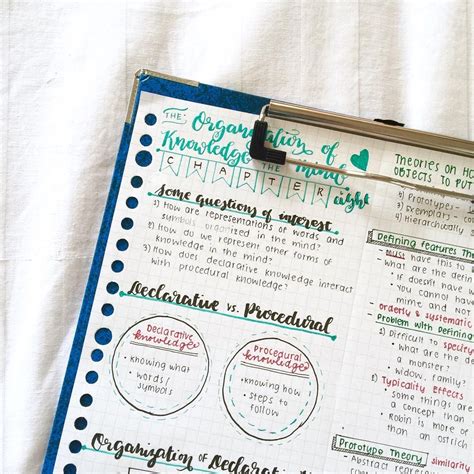 THE Organization of
Knowledge IN THE mind
CHAPTER eight
Some questions of interest
1) How are representations of words and
symbols organized in the mind?
2) How do we represent other forms of
knowledge in the mind?
3) How does declarative knowledge interact
with procedural knowledge?
Declarative vs. Procedural
Declarative
knowledge
• knowing what
• words/
symbols
Procedural
knowledge
• knowing how
• steps to
follow
Organization of Declarative
THEORIES ON HO
OBJECTS TO PU
2) Prototypes -
3) Exemplars -
4) Hierarchically
Defining features The
have this to
• what are the defin
if it doesn't have
• You cannot hav
mime and not
• orderly & systematic
Problem with defining
1) Difficult to specify
• what are the def
a monster?
• widow, family?
2) Typicality Effects
• Some things ar
a concept than
• Robin is more
than an ost
Prototype Theory
similarity
• Abstract repres